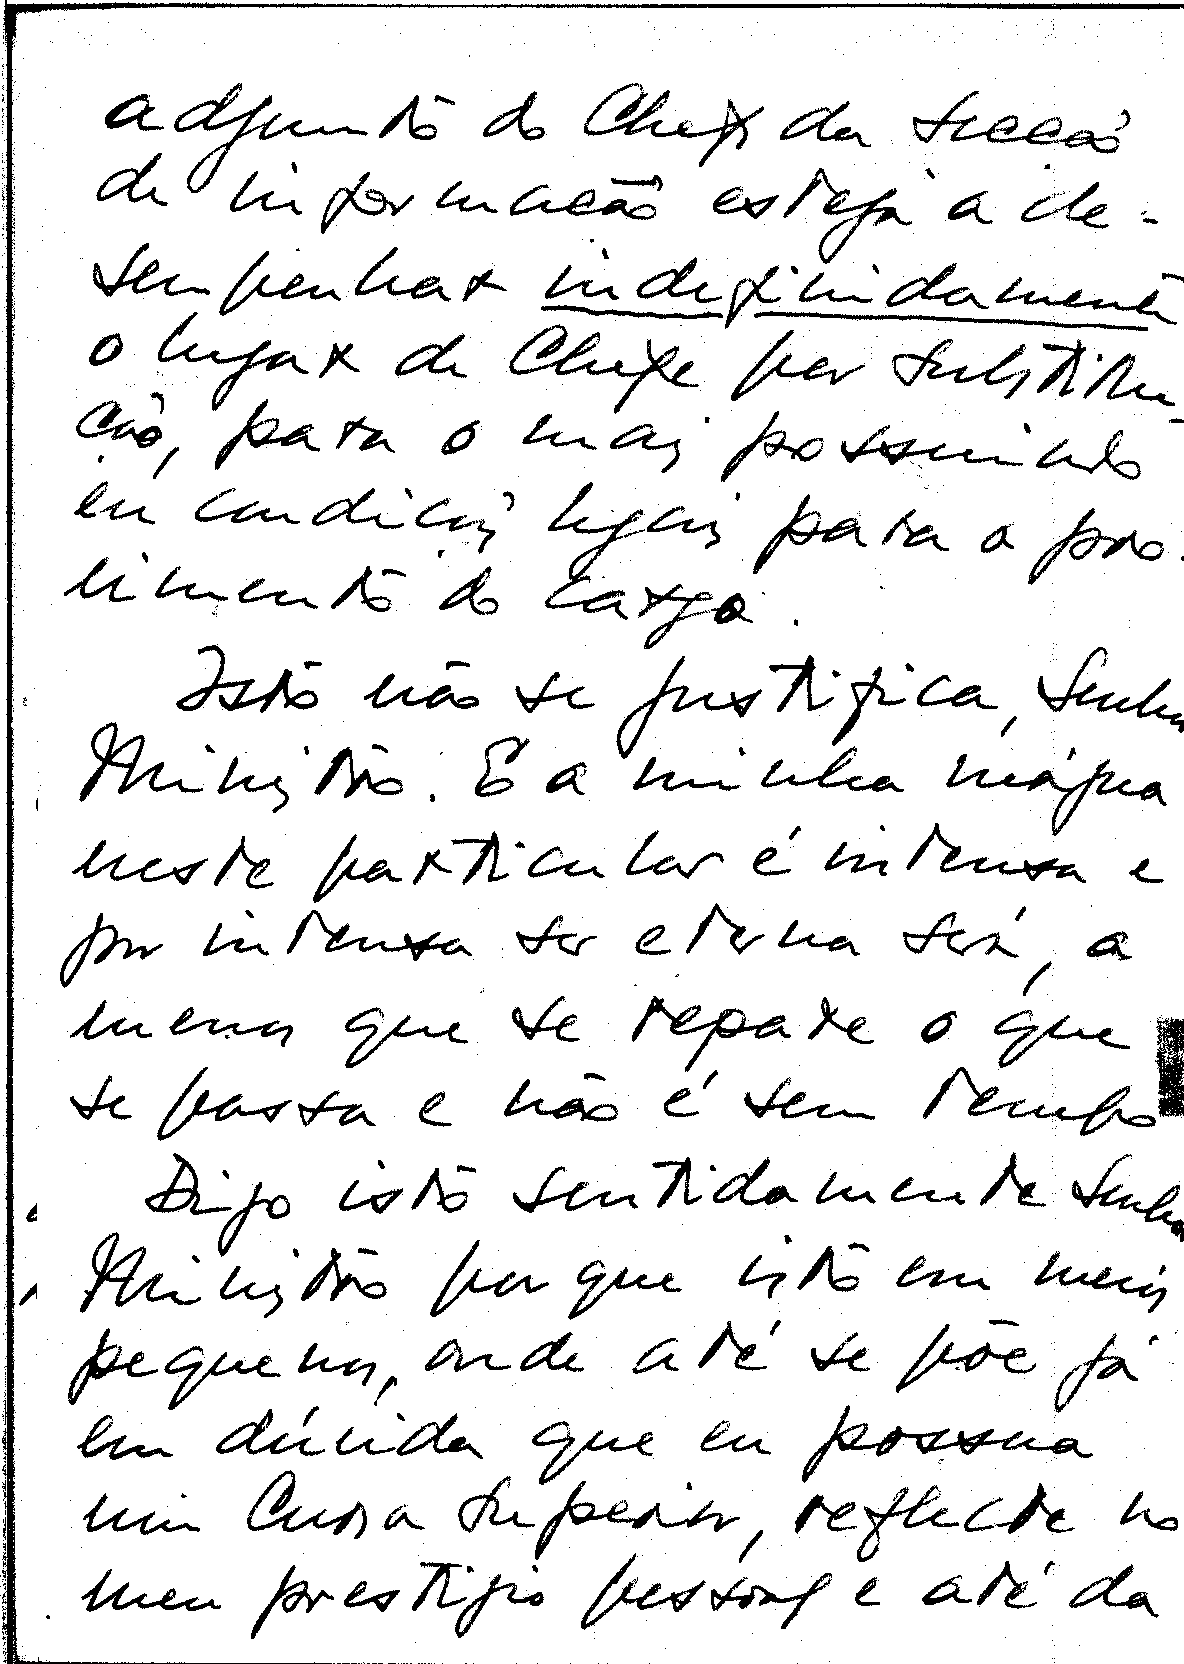 adjunto do Chefe da Secção
de informação esteja a de-
sempenhar indefinidamente
o lugar de Chefe por substitui-
ção, para o mais possuindo
eu condições legais para o pro-
vimento do cargo.
Isto não se justifica, Senhor
Ministro. E a minha mágua
neste particular é intensa e
por intensa ser eterna será, a
menos que se repare o que
se passa e não é sem tempo
Digo isto sentidamente Senhor
Ministro porque isto em meios
pequenos, onde até se põe já
em dúvida que eu possua
um Curso Superior, reflecte no
meu prestígio pessoal e até da